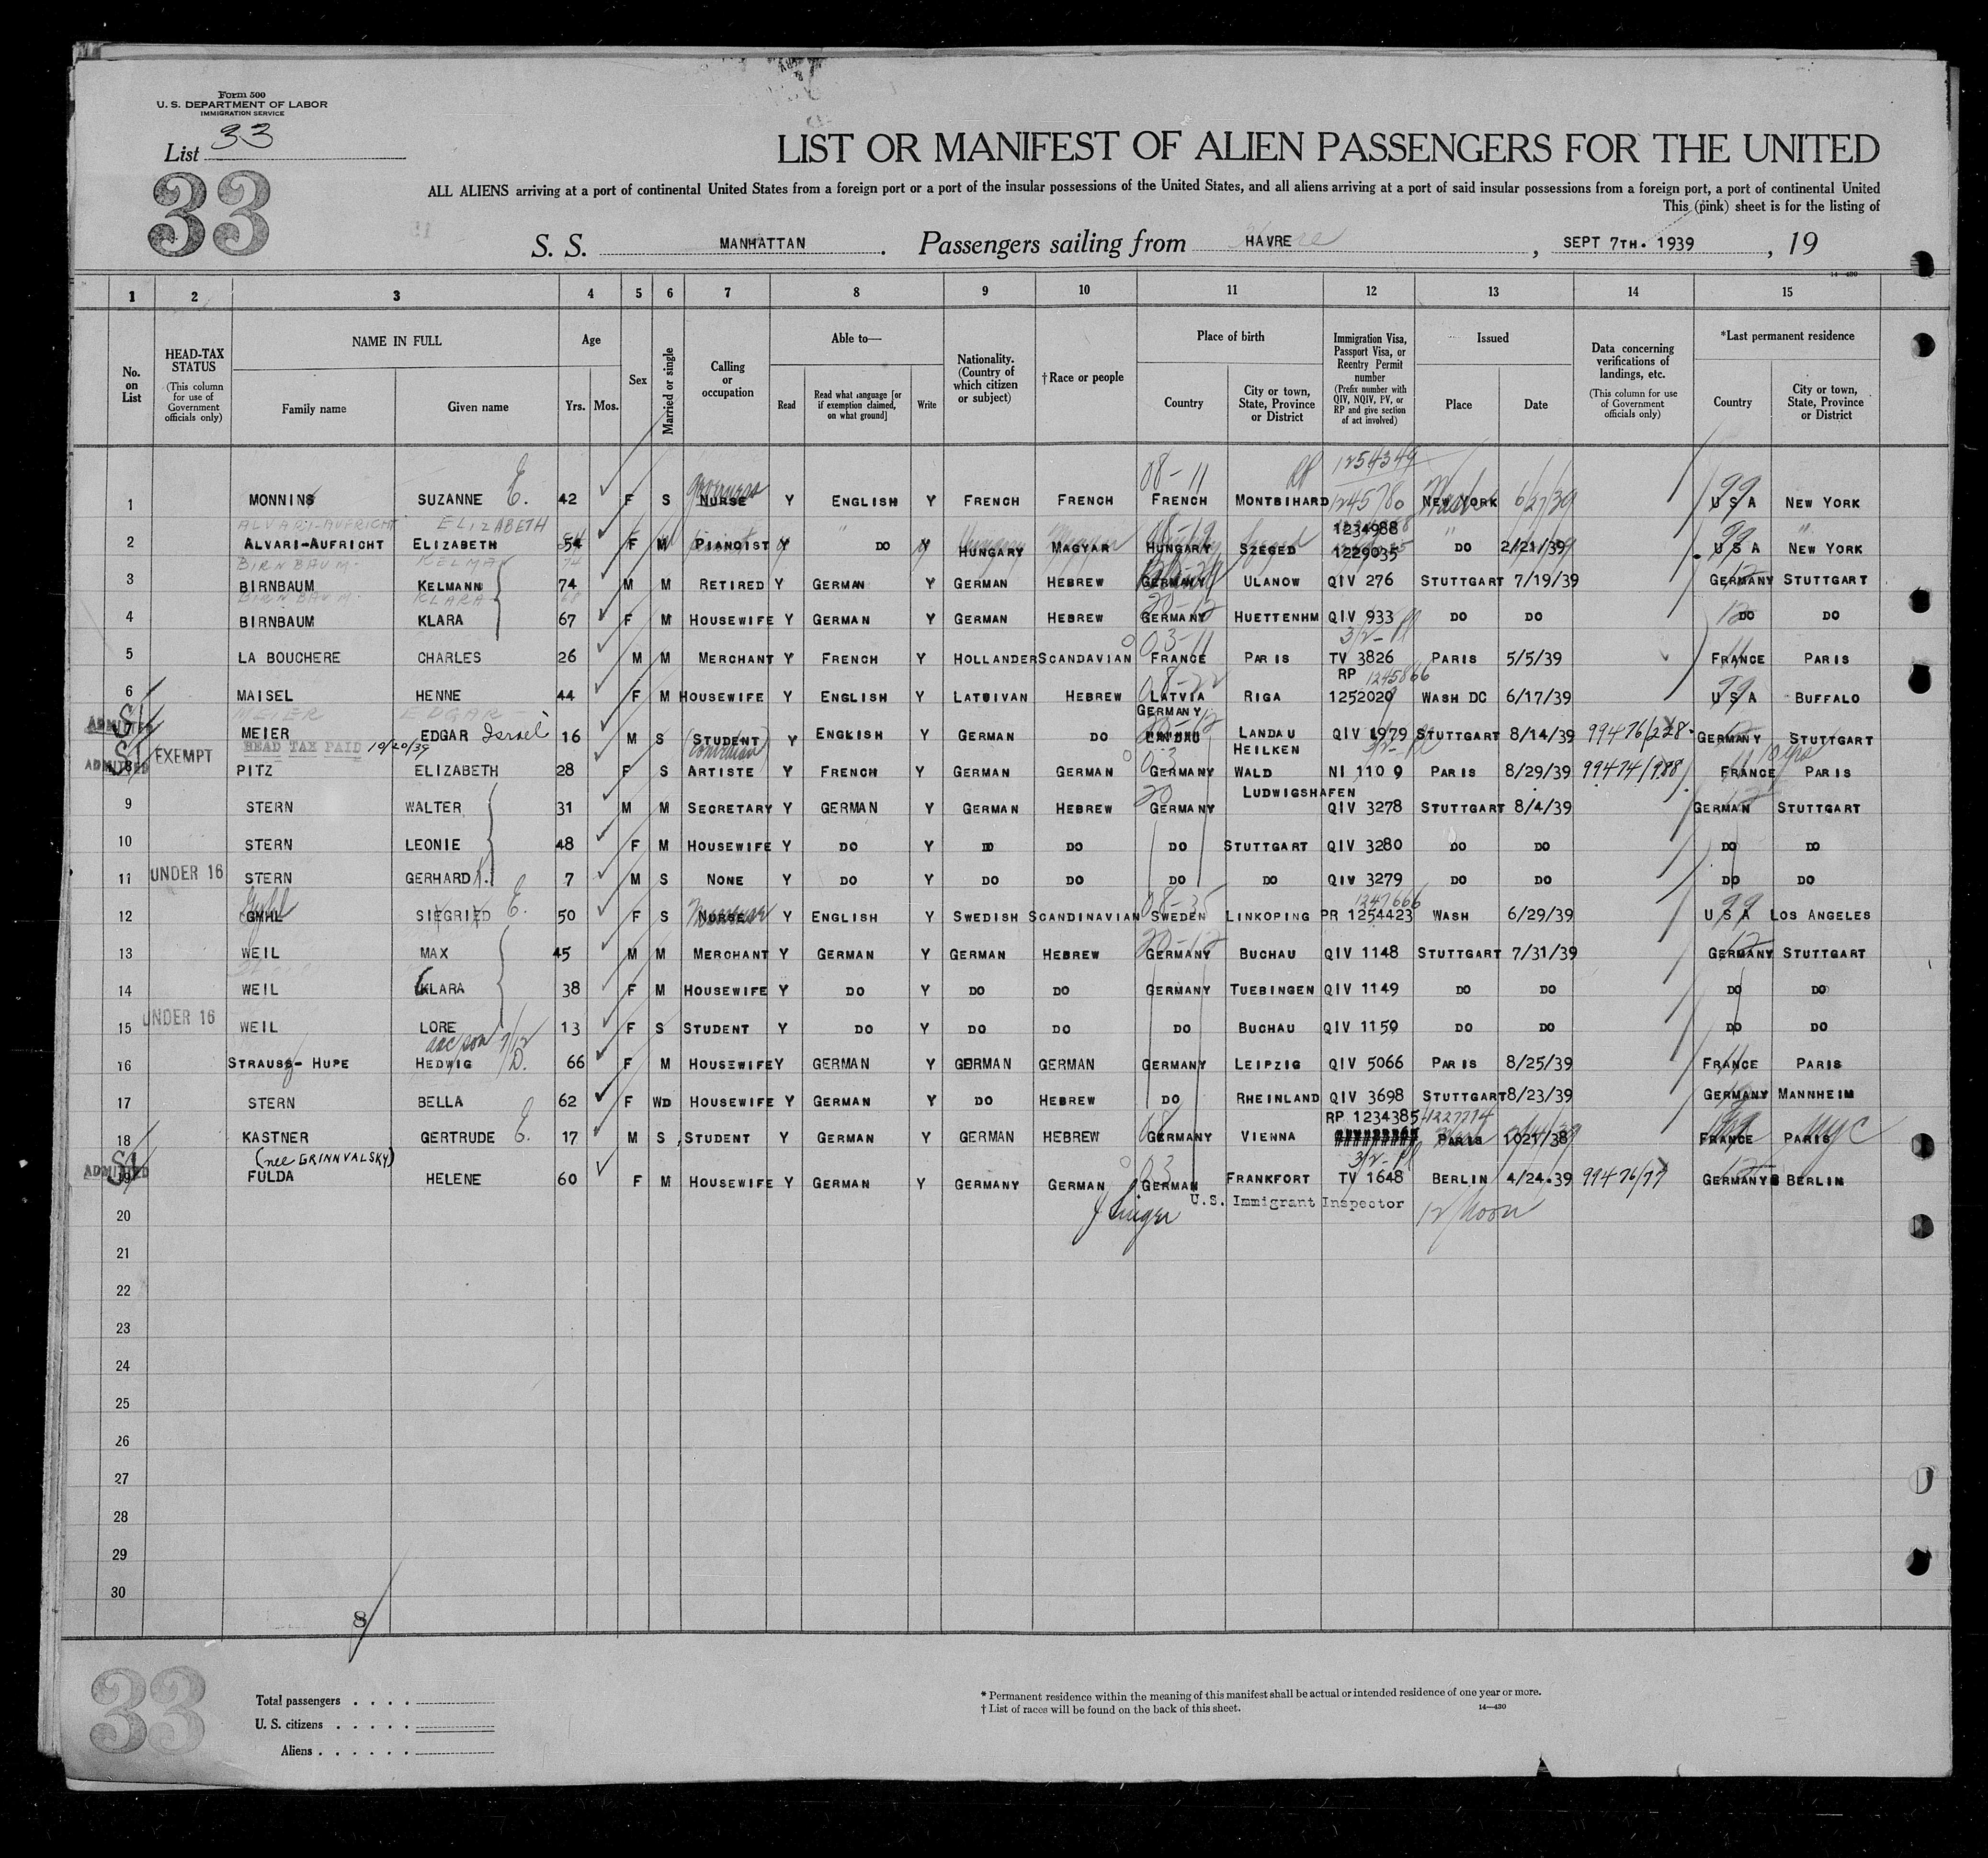 Form 500
U. S. DEPARTMENT OF LABOR
IMMIGRATION SERVICE
List 33
33
LIST OR MANIFEST OF ALIEN PASSENGERS FOR THE UNITED
ALL ALIENS arriving at a port of continental United States from a foreign port or a port of the insular possessions of the United States, and all aliens arriving at a port of said insular possessions from a foreign port, a port of continental United
This (pink) sheet is for the listing of
S. S. MANHATTAN. Passengers sailing from HAVRE, SEPT 7TH. 1939, 19
14-430
1 2 3 4 5 6 7 8 9 10 11 12 13 14 15
No. on List
HEAD-TAX STATUS (This column for use of Government officials only)
NAME IN FULL Family name Given name
Age Yrs. Mos.
Sex
Married or single
Calling or occupation
Able to— Read Read what language [or if exemption claimed, on what ground] Write
Nationality. (Country of which citizen or subject)
†Race or people
Place of birth Country City or town, State, Province or District
Immigration Visa, Passport Visa, or Reentry Permit number (Prefix number with QIV, NQIV, PV, or RP and give section of act involved)
Issued Place Date
Data concerning verifications of landings, etc. (This column for use of Government officials only)
*Last permanent residence Country City or town, State, Province or District
08-11 1254349
1 MONNINS SUZANNE E. 42 F S NURSE governess Y ENGLISH Y FRENCH FRENCH FRENCH MONTBIHARD 1245780 NEW YORK 6/27/39 99 U S A NEW YORK
ALVARI-AUFRICHT ELIZABETH
2 ALVARI-AUFRICHT ELIZABETH 54 F M PIANOIST Y DO Y HUNGARY MAGYAR HUNGARY SZEGED 1234988 1229035 DO 2/21/39 99 U S A NEW YORK
BIRNBAUM KELMAN 74
3 BIRNBAUM KELMANN 74 M M RETIRED Y GERMAN Y GERMAN HEBREW GERMANY ULANOW QIV 276 STUTTGART 7/19/39 GERMANY STUTTGART
BIRNBAUM KLARA
4 BIRNBAUM KLARA 67 F M HOUSEWIFE Y GERMAN Y GERMAN HEBREW GERMANY HUETTENHM QIV 933 DO DO 12 DO DO
03-11 3/2-Pl
5 LA BOUCHERE CHARLES 26 M M MERCHANT Y FRENCH Y HOLLANDER SCANDAVIAN FRANCE PARIS TV 3826 PARIS 5/5/39 FRANCE PARIS
RP 1245866
6 MAISEL HENNE 44 F M HOUSEWIFE Y ENGLISH Y LATVIVAN HEBREW LATVIA RIGA 1252020 WASH DC 6/17/39 99 U S A BUFFALO
MEIER EDGAR GERMANY
ADMITTED SI 7 MEIER EDGAR Israel 16 M S STUDENT Y ENGLISH Y GERMAN DO LANDAU LANDAU QIV 1979 STUTTGART 8/14/39 99476/228 GERMANY STUTTGART
HEAD TAX PAID 10/20/39 HEILKEN
ADMITTED SI 8 EXEMPT PITZ ELIZABETH 28 F S ARTISTE Y FRENCH Y GERMAN GERMAN GERMANY WALD NI 110 9 PARIS 8/29/39 99474/988 FRANCE PARIS
LUDWIGSHAFEN
9 STERN WALTER 31 M M SECRETARY Y GERMAN Y GERMAN HEBREW GERMANY QIV 3278 STUTTGART 8/4/39 GERMAN STUTTGART
10 STERN LEONIE 48 F M HOUSEWIFE Y DO Y DO DO DO STUTTGART QIV 3280 DO DO DO DO
11 UNDER 16 STERN GERHARD 7 M S NONE Y DO Y DO DO DO DO QIV 3279 DO DO DO DO
08-35 1247666
12 GMHL SIEGRIED E. 50 F S NURSE Y ENGLISH Y SWEDISH SCANDINAVIAN SWEDEN LINKOPING PR 1254423 WASH 6/29/39 99 U S A LOS ANGELES
13 WEIL MAX 45 M M MERCHANT Y GERMAN Y GERMAN HEBREW GERMANY BUCHAU QIV 1148 STUTTGART 7/31/39 GERMANY STUTTGART
14 WEIL KLARA 38 F M HOUSEWIFE Y DO Y DO DO GERMANY TUEBINGEN QIV 1149 DO DO DO DO
15 UNDER 16 WEIL LORE 13 F S STUDENT Y DO Y DO DO DO BUCHAU QIV 1159 DO DO DO DO
16 STRAUSS- HUPE HEDWIG D. 66 F M HOUSEWIFE Y GERMAN Y GERMAN GERMAN GERMANY LEIPZIG QIV 5066 PARIS 8/25/39 FRANCE PARIS
17 STERN BELLA 62 F WD HOUSEWIFE Y GERMAN Y DO HEBREW DO RHEINLAND QIV 3698 STUTTGART 8/23/39 GERMANY MANNHEIM
RP 1234385 1227774
18 KASTNER GERTRUDE E. 17 M S STUDENT Y GERMAN Y GERMAN HEBREW GERMANY VIENNA PARIS 1021/38 FRANCE PARIS NYC
(nee GRINNVALSKY) 3/2-Pl
ADMITTED SI 19 FULDA HELENE 60 F M HOUSEWIFE Y GERMAN Y GERMANY GERMAN GERMAN FRANKFORT TV 1648 BERLIN 4/24.39 99476/77 GERMANY BERLIN
20 U.S. Immigrant Inspector 12/Noon
21
22
23
24
25
26
27
28
29
30
8
33
Total passengers . . . .
U. S. citizens . . . . .
Aliens . . . . . .
* Permanent residence within the meaning of this manifest shall be actual or intended residence of one year or more.
† List of races will be found on the back of this sheet.
14—430